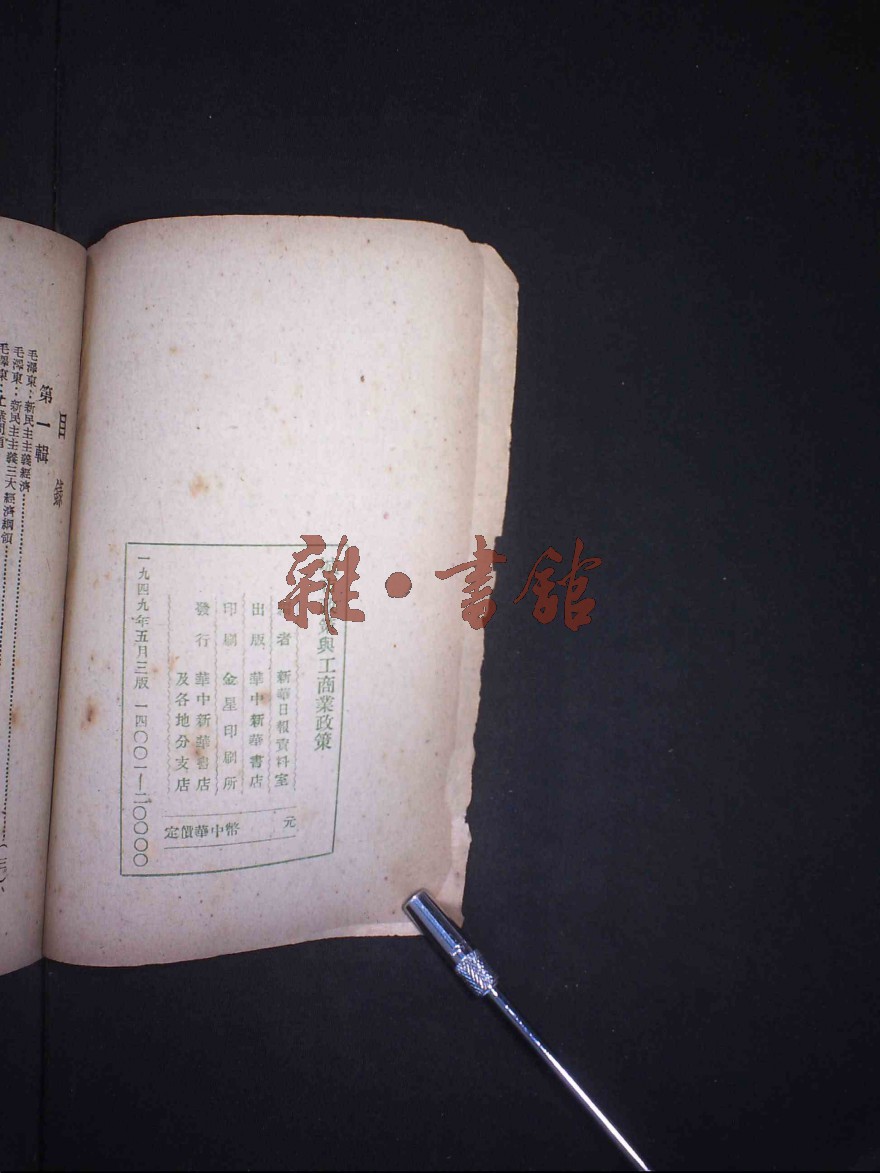 策與工商業政策
者 新華日報資料室
出版 華中新華書店
印刷 金星印刷所
發行 華中新華書店
及各地分支店
定價華中幣 元
一九四九年五月三版 一四〇〇一—二〇〇〇〇
目錄
第一輯
毛澤東：新民主主義經濟
毛澤東：新民主主義三大經濟綱領
毛澤東：工業問題
雜·書館